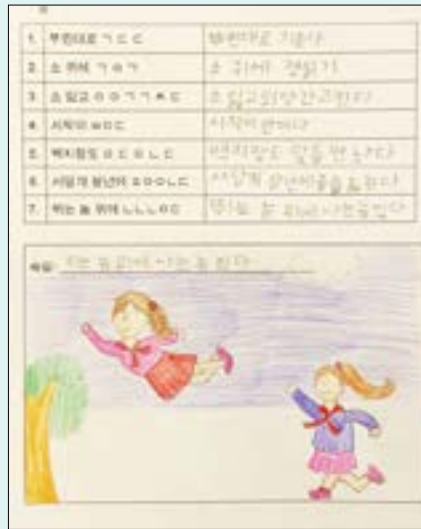 1. 부전대로 ㄱㄷㄷ
2. 소 위에 ㄱㅇㄱ 소 위에 경읽기
3. 소 잃고 ㅇㅇㄱㄱㅊㄷ 소 잃고 외양간 고친다
4. 시작이 ㅂㄷㄷ 시작이 반이다
5. 백지장도 백지장도 맞들면 낫다
6. 서당개 삼년에 ㅍㅇㅇㄴㄷ 서당개 삼년에 풍월을 읊는다
7. 뛰는 놈 위에 ㄴㄴㄴㅇㄷ 뛰는 놈 위에 나는 놈 있다
뛰는 놈 위에 나는 놈 있다